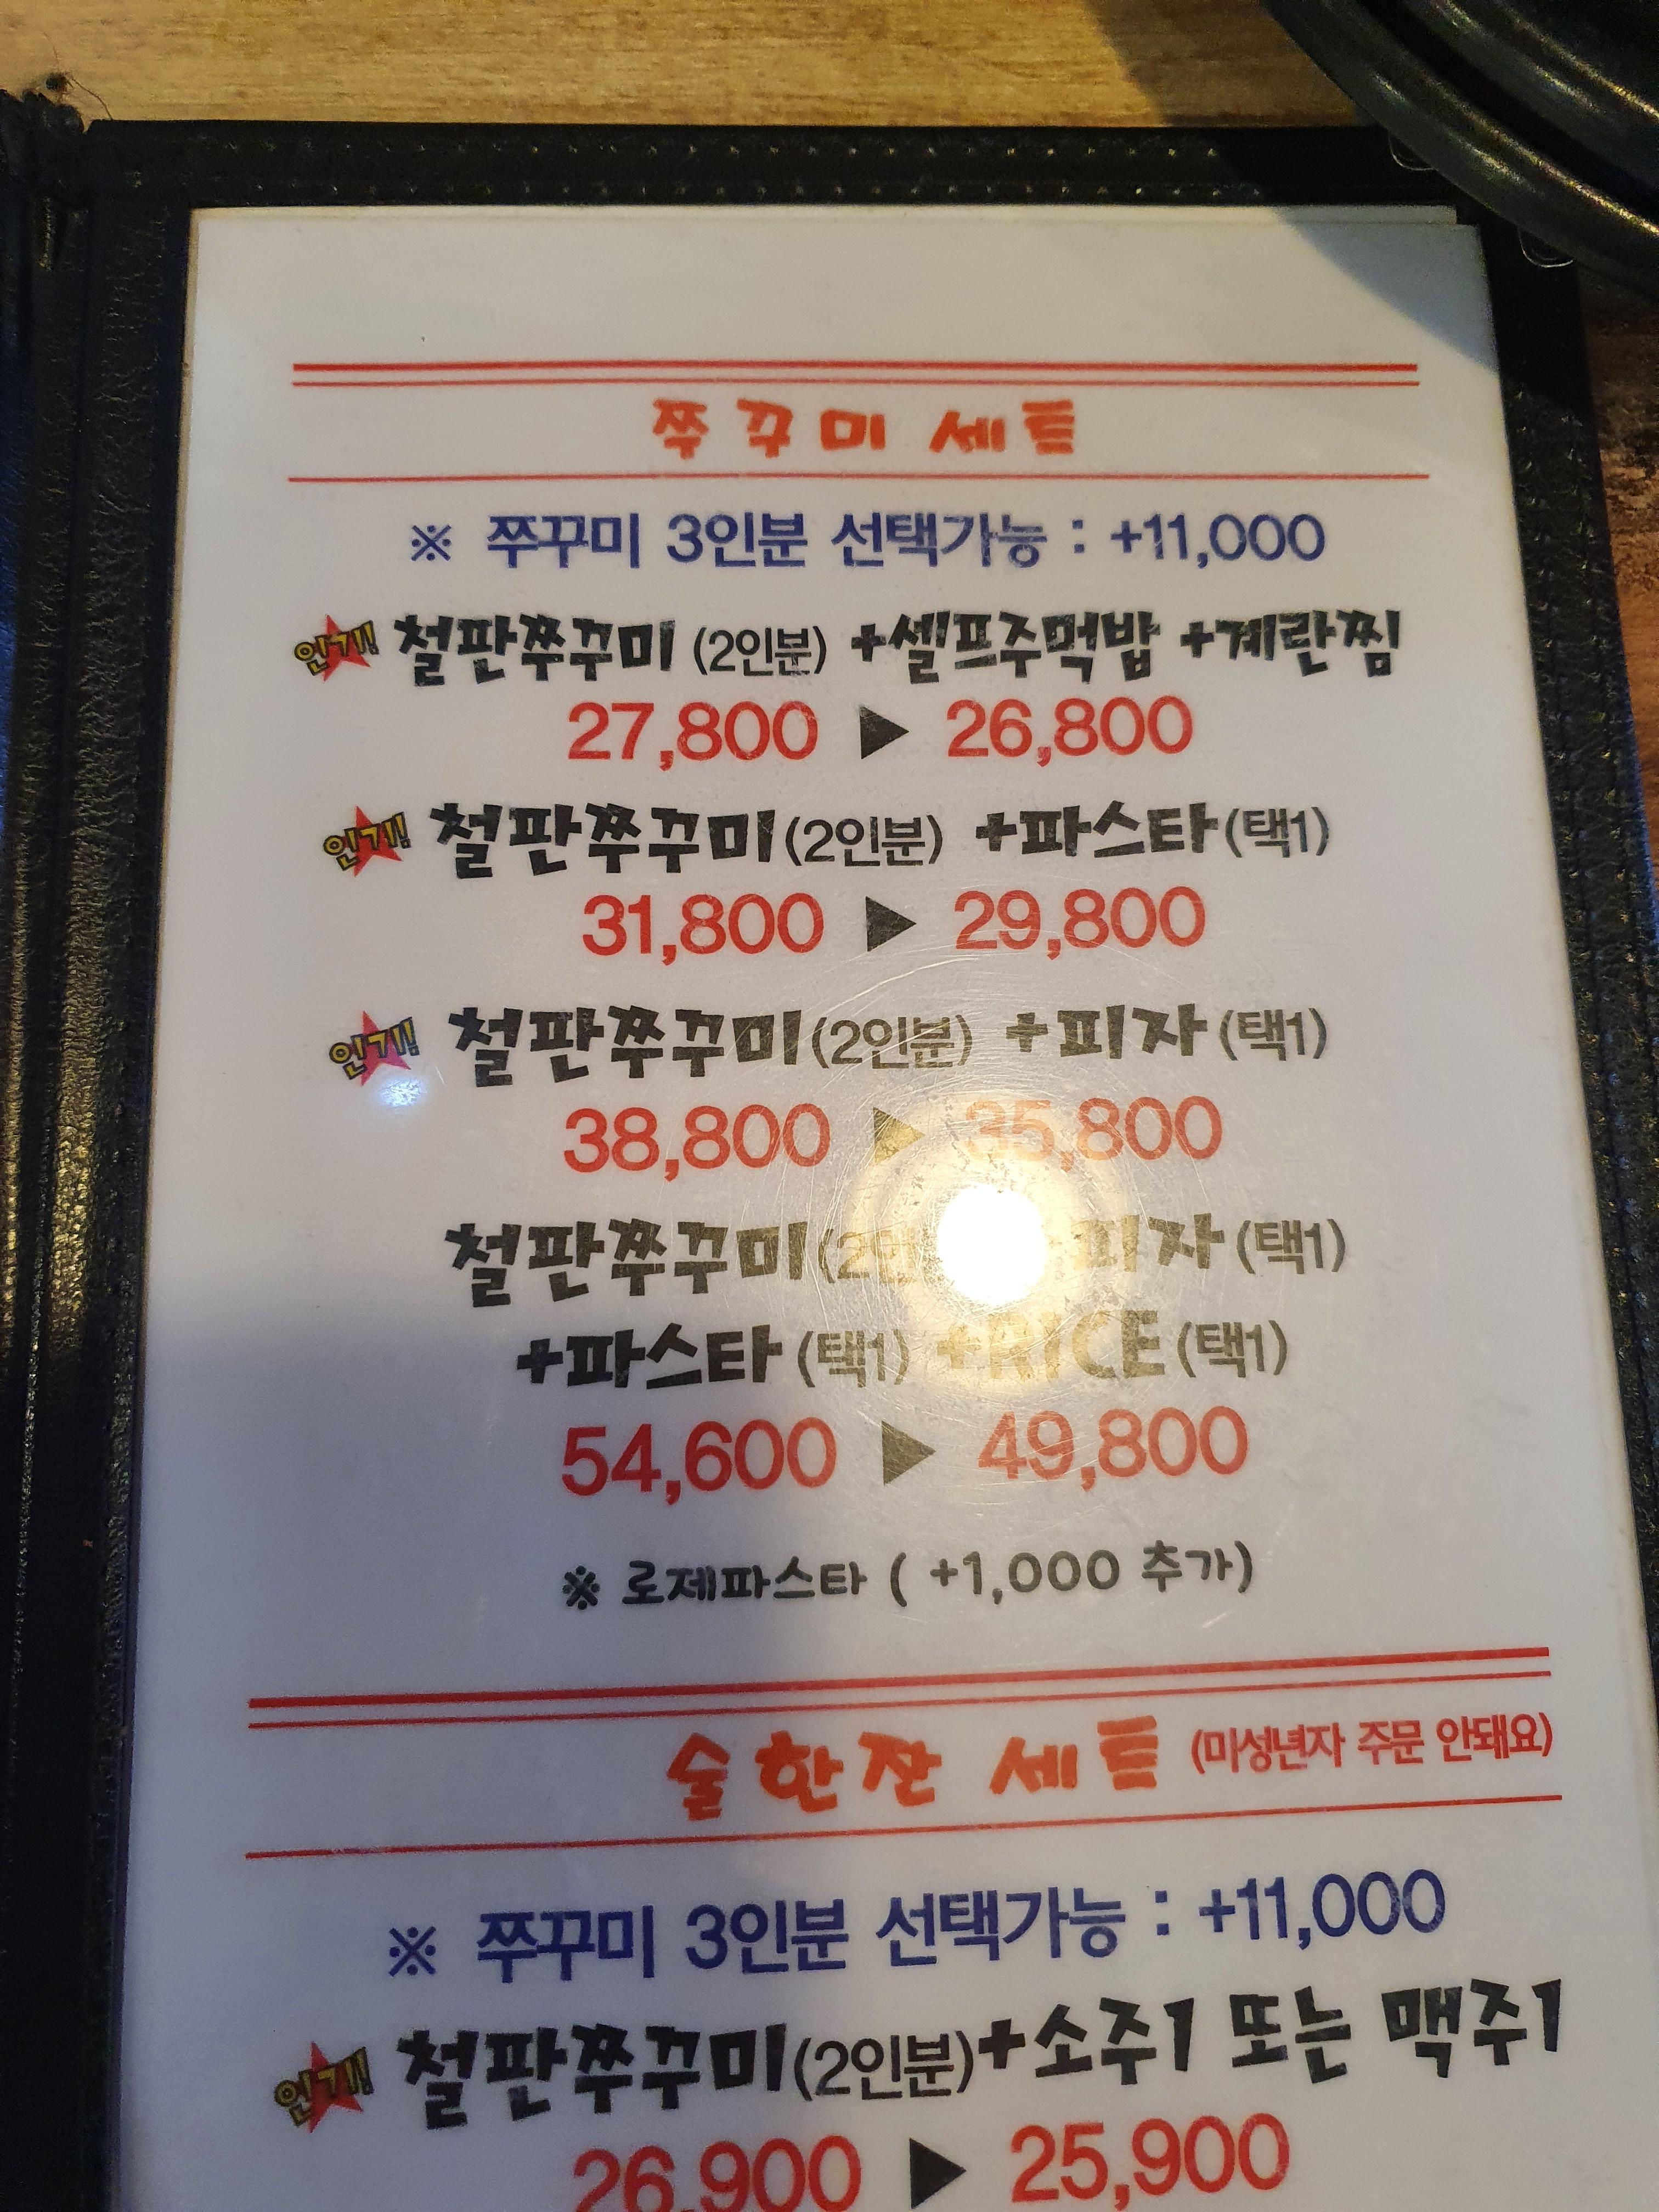 쭈꾸미 세트
※ 쭈꾸미 3인분 선택가능 : +11,000
인기! 철판쭈꾸미 (2인분) +셀프주먹밥 +계란찜
27,800 ▶ 26,800
인기! 철판쭈꾸미(2인분) +파스타(택1)
31,800 ▶ 29,800
인기! 철판쭈꾸미(2인분) +피자(택1)
38,800 ▶ 35,800
철판쭈꾸미 피자(택1)
+파스타(택1) +RICE(택1)
54,600 ▶ 49,800
※ 로제파스타 ( +1,000 추가)
술한잔 세트 (미성년자 주문 안돼요)
※ 쭈꾸미 3인분 선택가능 : +11,000
인기! 철판쭈꾸미(2인분)+소주1 또는 맥주1
26,900 ▶ 25,900